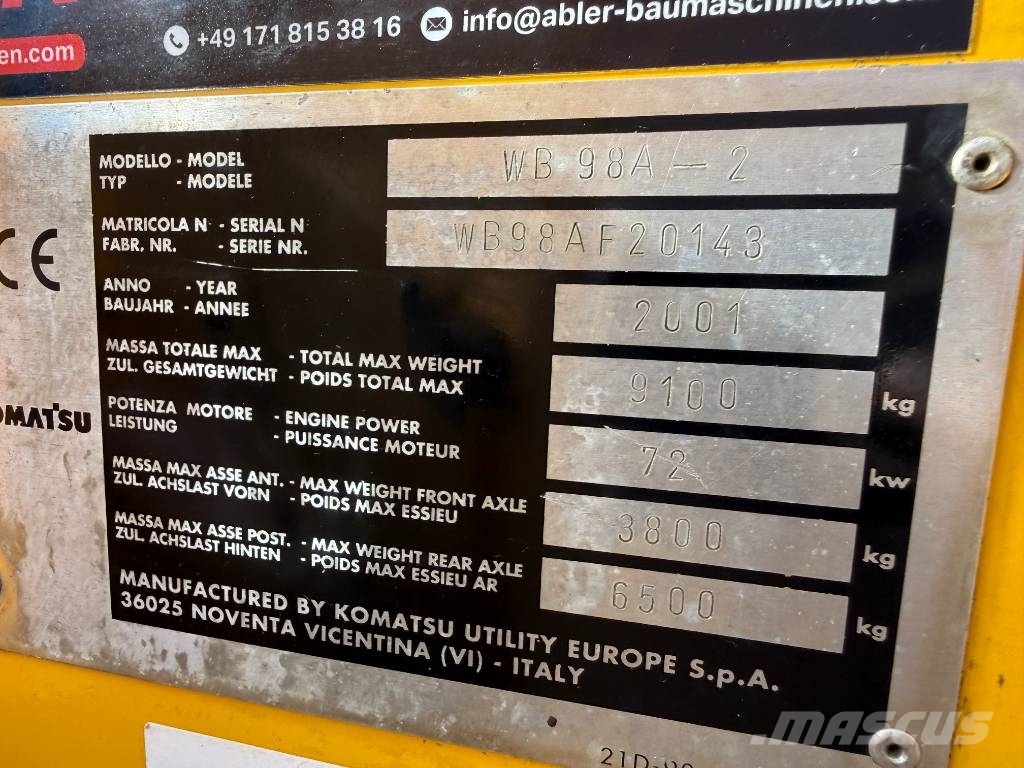 +49 171 815 38 16 info@abler-baumaschinen
en.com
MODELLO - MODEL
TYP - MODELE
WB 98A - 2
MATRICOLA N - SERIAL N
FABR. NR. - SERIE NR.
WB98AF20143
ANNO - YEAR
BAUJAHR - ANNEE
2001
MASSA TOTALE MAX - TOTAL MAX WEIGHT
ZUL. GESAMTGEWICHT - POIDS TOTAL MAX
9100 kg
POTENZA MOTORE - ENGINE POWER
LEISTUNG - PUISSANCE MOTEUR
72 kw
MASSA MAX ASSE ANT. - MAX WEIGHT FRONT AXLE
ZUL. ACHSLAST VORN - POIDS MAX ESSIEU
3800 kg
MASSA MAX ASSE POST. - MAX WEIGHT REAR AXLE
ZUL. ACHSLAST HINTEN - POIDS MAX ESSIEU AR
6500 kg
MANUFACTURED BY KOMATSU UTILITY EUROPE S.p.A.
36025 NOVENTA VICENTINA (VI) - ITALY
CE
OMATSU
21D-
MASCUS